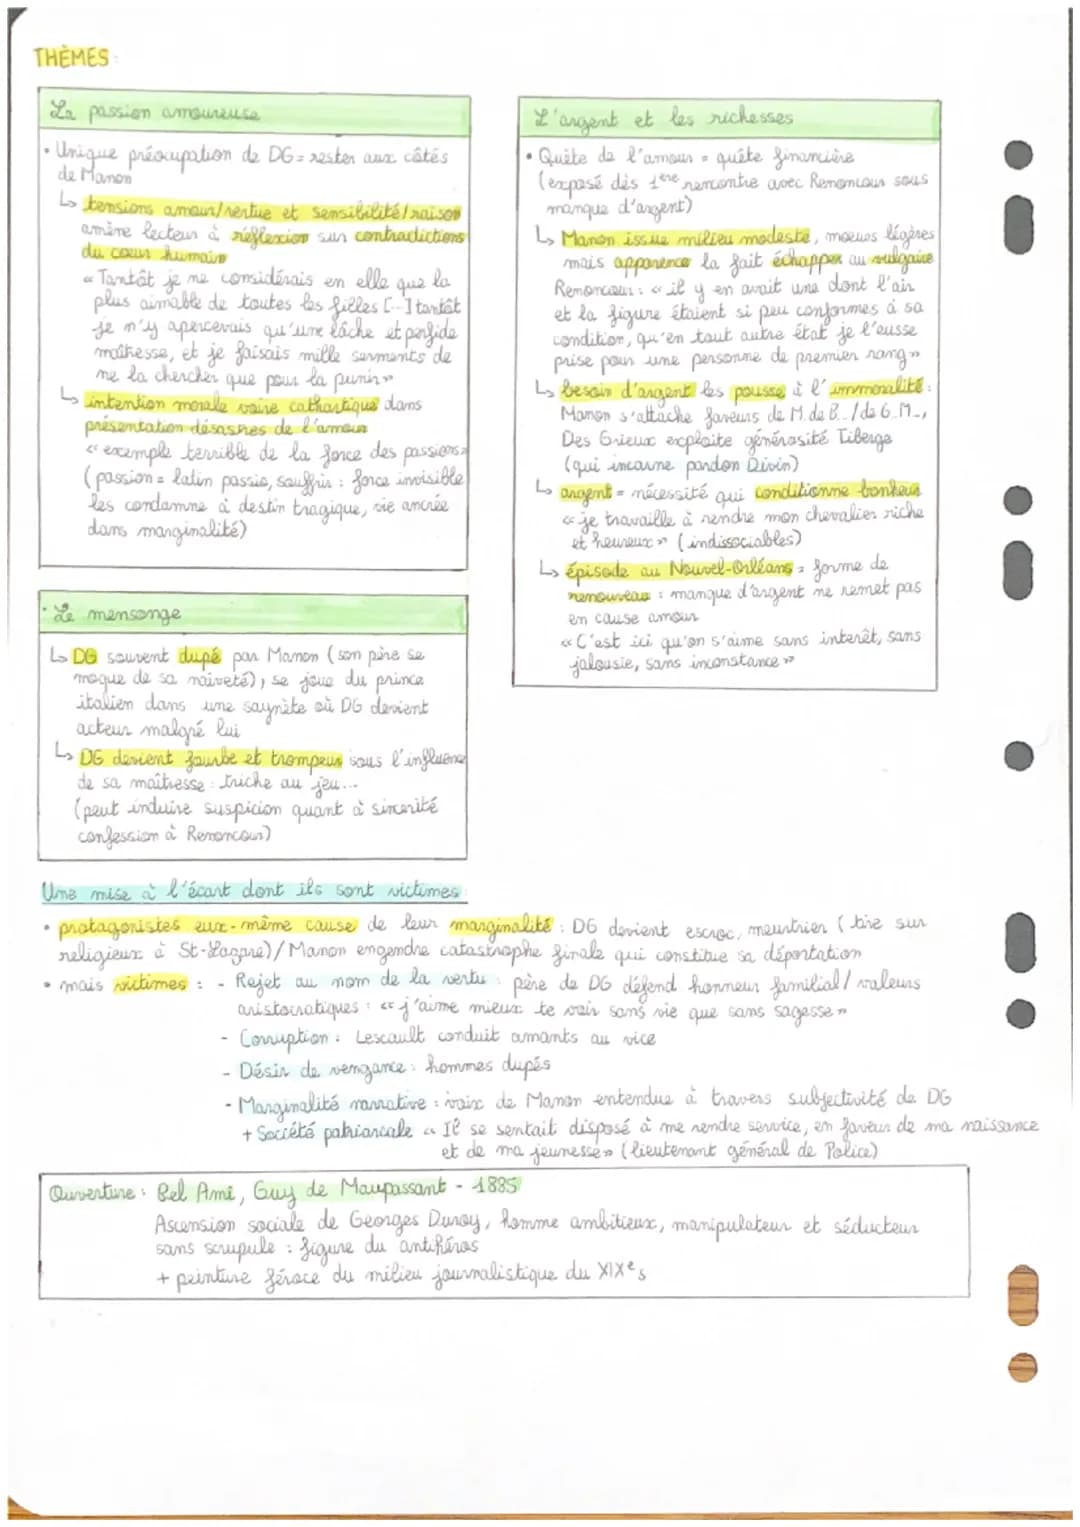 THÈMES :
La passion amoureuse
• Unique préocupation de DG = rester aux côtés
de Manon
↳ tensions amour/vertue et sensibilité/raison
amène lecteur à réflexion sur contradictions
du cœur humain
« Tantôt je ne considérais en elle que la
plus aimable de toutes les filles [...] tantôt
je n'y apercevais qu'une lâche et perfide
maîtresse, et je faisais mille serments de
ne la chercher que pour la punir »
↳ intention morale voire cathartique dans
présentation désastres de l'amour
« exemple terrible de la force des passions »
(passion = latin passio, souffrir : force invisible
les condamne à destin tragique, vie ancrée
dans marginalité)
• Le mensonge
↳ DG souvent dupé par Manon (son père se
moque de sa naïveté), se joue du prince
italien dans une saynète où DG devient
acteur malgré lui
↳ DG devient fourbe et trompeur sous l'influence
de sa maîtresse : triche au jeu...
(peut induire suspicion quant à sincérité
confession à Renoncour)
L'argent et les richesses
• Quête de l'amour = quête financière
(exposé dès 1ère rencontre avec Renoncour sous
manque d'argent)
↳ Manon issue milieu modeste, moeurs légères
mais apparence la fait échapper au vulgaire
Renoncour : « il y en avait une dont l'air
et la figure étaient si peu conformes à sa
condition, qu'en tout autre état je l'eusse
prise pour une personne de premier rang »
↳ besoin d'argent les pousse à l'immoralité :
Manon s'attache faveurs de M. de B... / de G.M...,
Des Grieux exploite générosité Tiberge
(qui incarne pardon Divin)
↳ argent = nécessité qui conditionne bonheur
« je travaille à rendre mon chevalier riche
et heureux » (indissociables)
↳ épisode au Nouvel-Orléans = forme de
renouveau : manque d'argent ne remet pas
en cause amour
« C'est ici qu'on s'aime sans interêt, sans
jalousie, sans inconstance »
Une mise à l'écart dont ils sont victimes :
• protagonistes eux-même cause de leur marginalité : DG devient escroc, meurtrier (tire sur
religieux à St-Lazare) / Manon engendre catastrophe finale qui constitue sa déportation
• mais victimes : - Rejet au nom de la vertu : père de DG défend honneur familial / valeurs
aristocratiques : « j'aime mieux te voir sans vie que sans sagesse »
- Corruption : Lescault conduit amants au vice
- Désir de vengance : hommes dupés
- Marginalité narrative : voix de Manon entendue à travers subjectivité de DG
+ Société patriarcale « Il se sentait disposé à me rendre service, en faveur de ma naissance
et de ma jeunesse » (lieutenant général de Police)
Ouverture : Bel Ami, Guy de Maupassant - 1885
Ascension sociale de Georges Duroy, homme ambitieux, manipulateur et séducteur
sans scrupule : figure du antihéros
+ peinture féroce du milieu journalistique du XIXe s